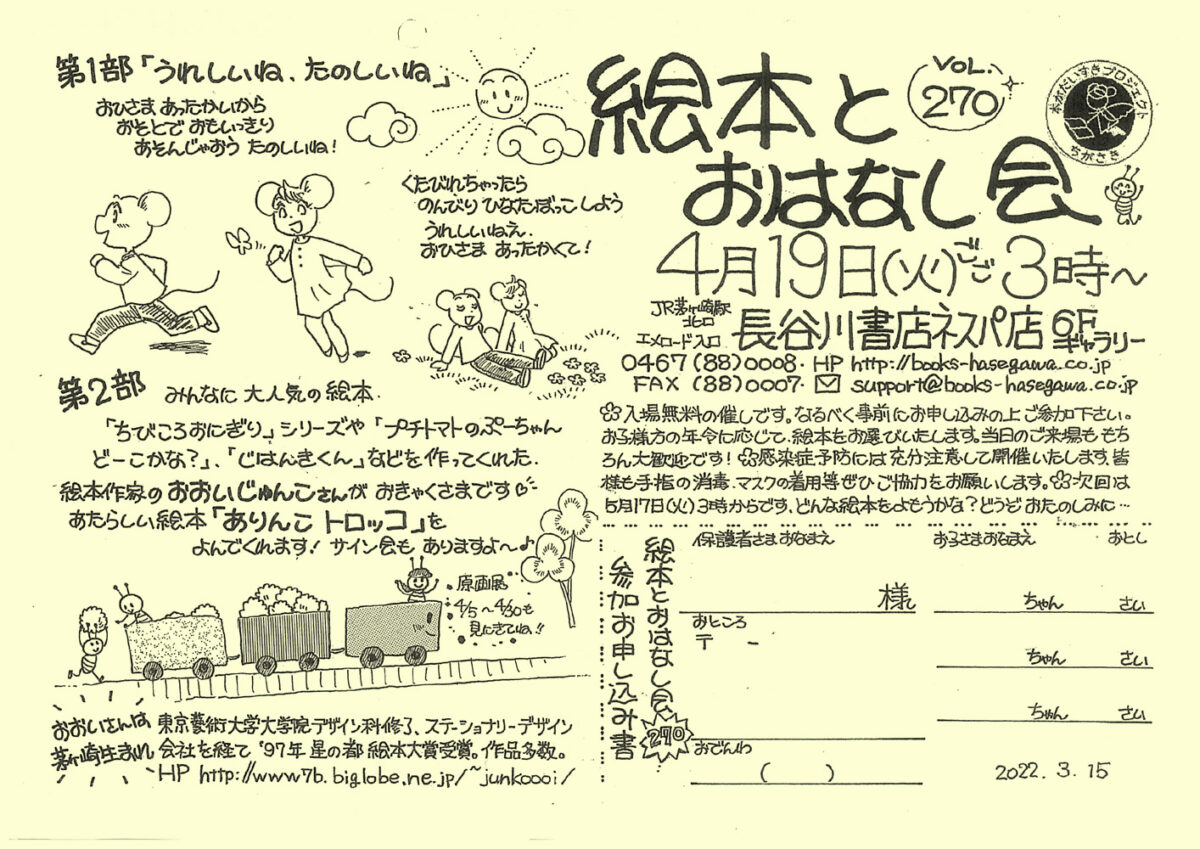 第1部「うれしいね、たのしいね」
おひさま あったかいから
おそとで おもいっきり
あそんじゃおう たのしいね!
くたびれちゃったら
のんびり ひなたぼっこ しよう
うれしいねえ.
おひさま あったかくて!
第2部 みんなに 大人気の絵本.
「ちびころおにぎり」シリーズや「プチトマトのぷーちゃん
どーこかな?」、「じはんきくん」などを作ってくれた.
絵本作家の おおいじゅんこさんが おきゃくさまです
あたらしい絵本「ありんこ トロッコ」を
よんでくれます! サイン会も ありますよ〜♪
原画展
4/5〜4/30も
見にきてね!!
おおいさんは
茅ヶ崎生まれ
東京藝術大学大学院デザイン科修了、ステーショナリーデザイン
会社を経て '97年 星の都 絵本大賞受賞。作品多数。
HP http://www7b.biglobe.ne.jp/~junkoooi/
絵本と
おはなし会
VOL.
270
本がだいすきプロジェクト
ちがさき
4月19日(火)ごご3時〜
JR茅ヶ崎駅
北口
エメロード入口
長谷川書店ネスパ店 6F
ギャラリー
0467(88)0008・HP http://books-hasegawa.co.jp
FAX (88)0007・ support@books-hasegawa.co.jp
入場無料の催しです。なるべく事前にお申し込みの上ご参加下さい。
お子様方の年令に応じて、絵本をお選びいたします。当日のご来場も もち
ろん大歓迎です! 感染症予防には充分注意して開催いたします。皆
様も手指の消毒、マスクの着用等ぜひご協力をお願いします。次回は
5月17日(火)3時からです、どんな絵本をよもうかな?どうぞ おたのしみに…
絵本とおはなし会
270
参加お申し込み書
保護者さまおなまえ
お子さまおなまえ
おとし
様
ちゃん さい
おところ
〒 -
ちゃん さい
ちゃん さい
おでんわ
( )
2022.3.15